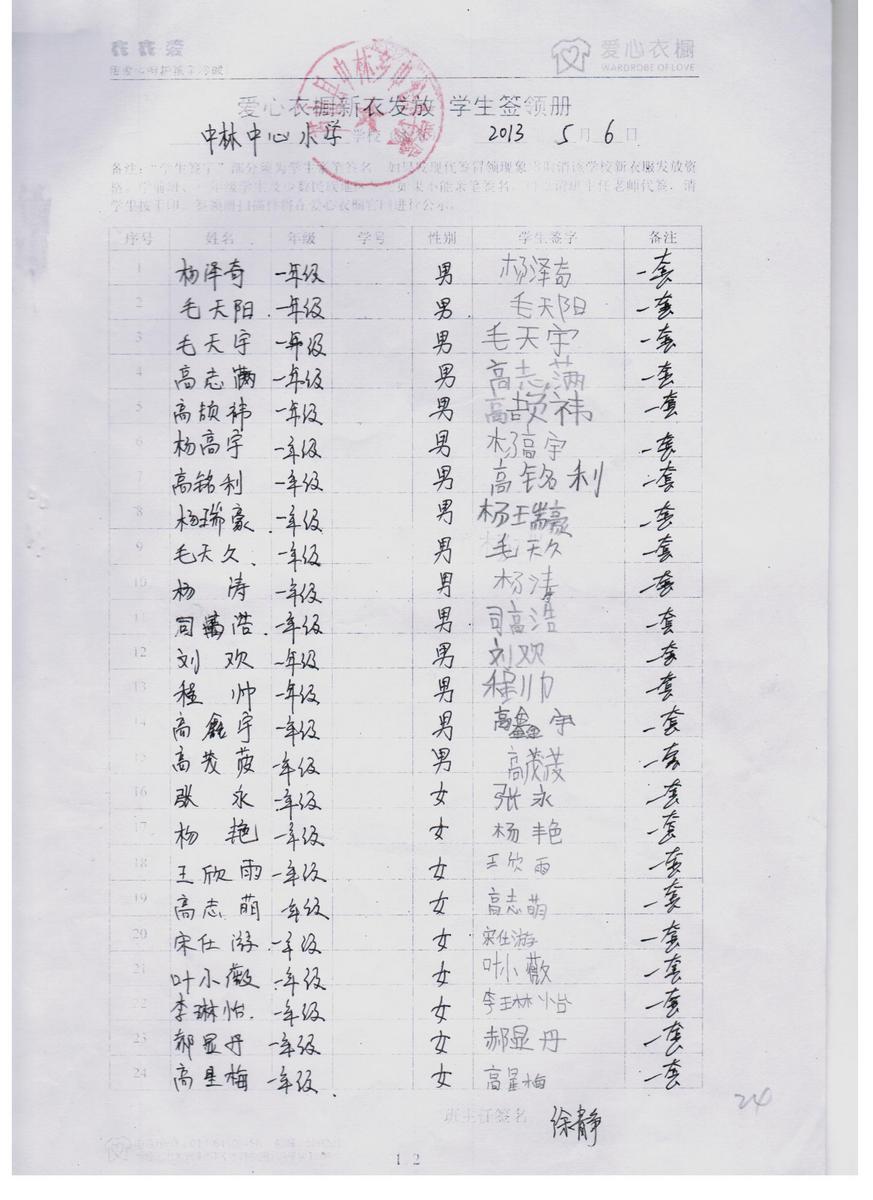 爱心衣橱
WARDROBE OF LOVE
爱心衣橱新衣发放 学生签领册
中林中心小学 学校 2013 5月6日
序号 姓名 年级 学号 性别 学生签字 备注
1 杨泽奇 一年级 男 杨泽奇 一套
2 毛天阳 一年级 男 毛天阳 一套
3 毛天宇 一年级 男 毛天宇 一套
4 高志满 一年级 男 高志满 一套
5 高颉祎 一年级 男 高颉祎 一套
6 杨高宇 一年级 男 杨高宇 一套
7 高铭利 一年级 男 高铭利 一套
8 杨瑞豪 一年级 男 杨瑞豪 一套
9 毛天久 一年级 男 毛天久 一套
10 杨涛 一年级 男 杨涛 一套
11 司高浩 一年级 男 司高浩 一套
12 刘欢 一年级 男 刘欢 一套
13 程帅 一年级 男 程帅 一套
14 高鑫宇 一年级 男 高鑫宇 一套
15 高茂菠 一年级 男 高茂菠 一套
16 张永 一年级 女 张永 一套
17 杨艳 一年级 女 杨艳 一套
18 王欣雨 一年级 女 王欣雨 一套
19 高志萌 一年级 女 高志萌 一套
20 宋仕游 一年级 女 宋仕游 一套
21 叶小薇 一年级 女 叶小薇 一套
22 李琳怡 一年级 女 李琳怡 一套
23 郝显丹 一年级 女 郝显丹 一套
24 高星梅 一年级 女 高星梅 一套
24
班主任签名 徐静
12